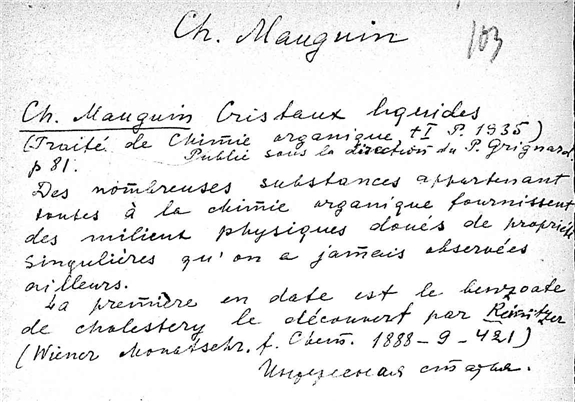 Ch. Mauguin
103
Ch. Mauguin Cristaux liquides
(Traité de Chimie organique t I P. 1935)
Publié sous la direction du P. Grignard
p 81.
Des nombreuses substances appartenant
toutes à la chimie organique fournissent
des milient physiques doués de propriété
singulières qu'on a jamais observées
ailleurs.
La première en date est le benzoate
de cholestery le découvert par Reinitzer
(Wiener Monatschr. f. Chem. 1888-9-421)
Интересная статья.